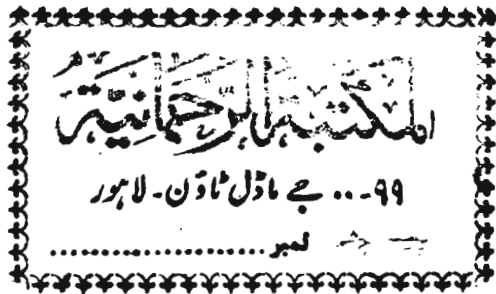 المكتبة الرحمانية
۹۹ - .. جے ماڈل ٹاؤن - لاہور
نمبر ......................